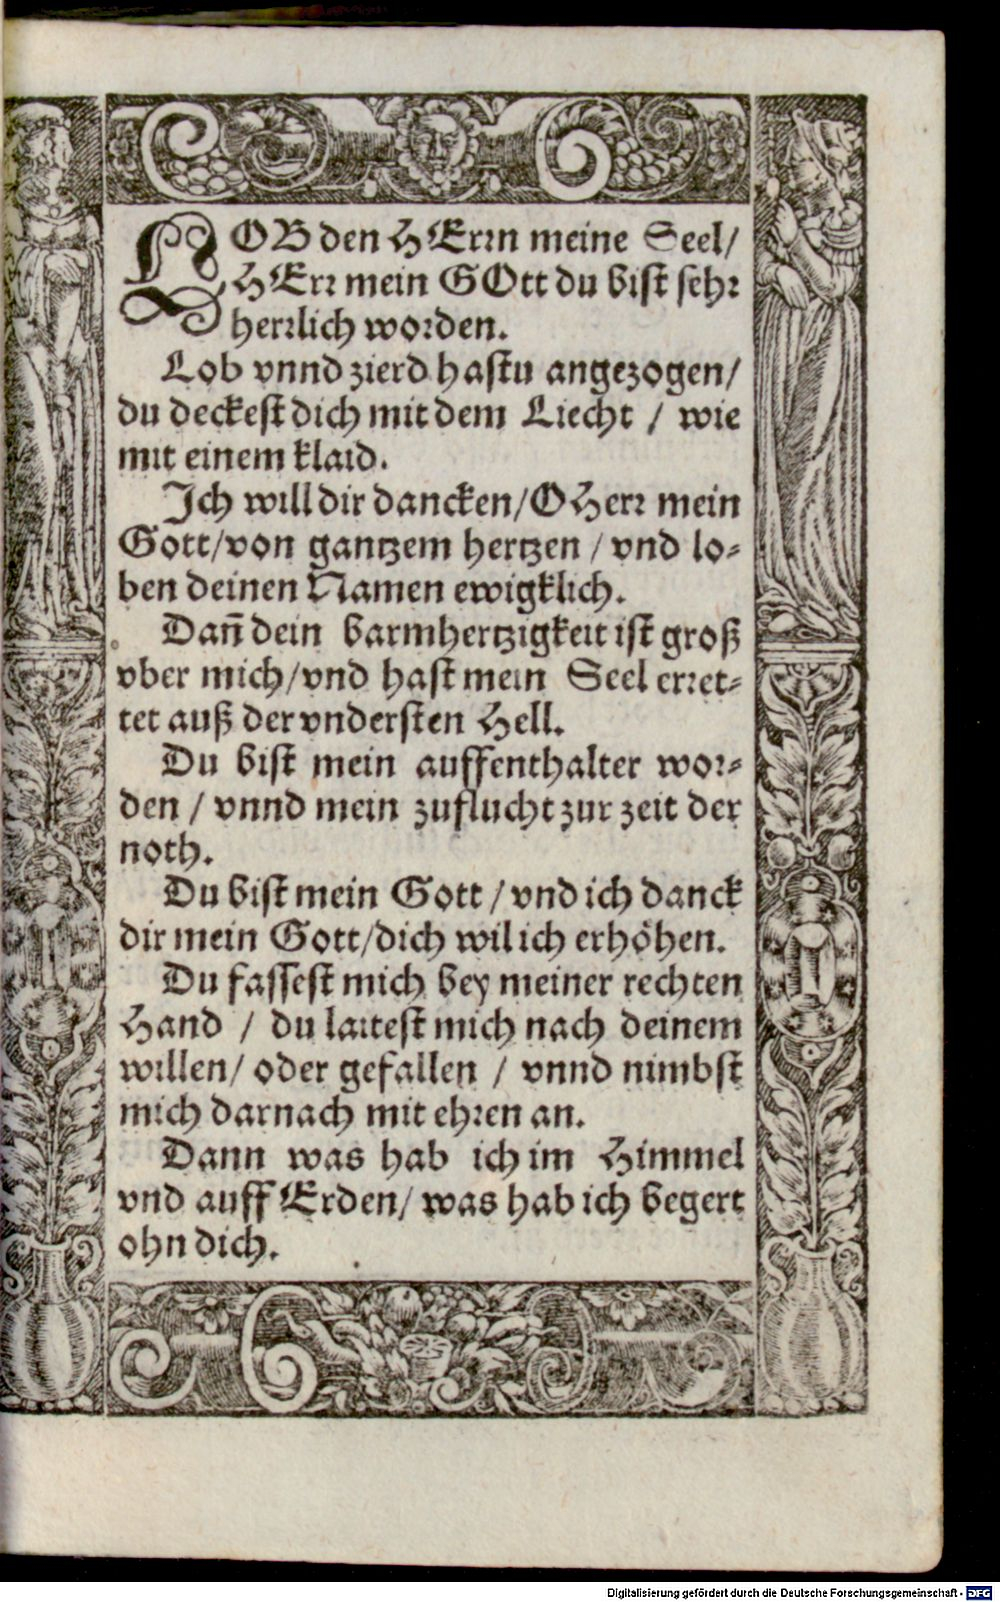 LOB den HErrn meine Seel/
HErr mein GOtt du bist sehr
herrlich worden.
Lob vnnd zierd hastu angezogen/
du deckest dich mit dem Liecht / wie
mit einem klaid.
Ich will dir dancken/O Herr mein
Gott/von gantzem hertzen / vnd lo-
ben deinen Namen ewigklich.
Dañ dein barmhertzigkeit ist groß
vber mich/vnd hast mein Seel erret-
tet auß der vndersten Hell.
Du bist mein auffenthalter wor-
den / vnnd mein zuflucht zur zeit der
noth.
Du bist mein Gott / vnd ich danck
dir mein Gott/dich wil ich erhöhen.
Du fassest mich bey meiner rechten
Hand / du laitest mich nach deinem
willen/ oder gefallen / vnnd nimbst
mich darnach mit ehren an.
Dann was hab ich im Himmel
vnd auff Erden/ was hab ich begert
ohn dich.
Digitalisierung gefördert durch die Deutsche Forschungsgemeinschaft - DFG